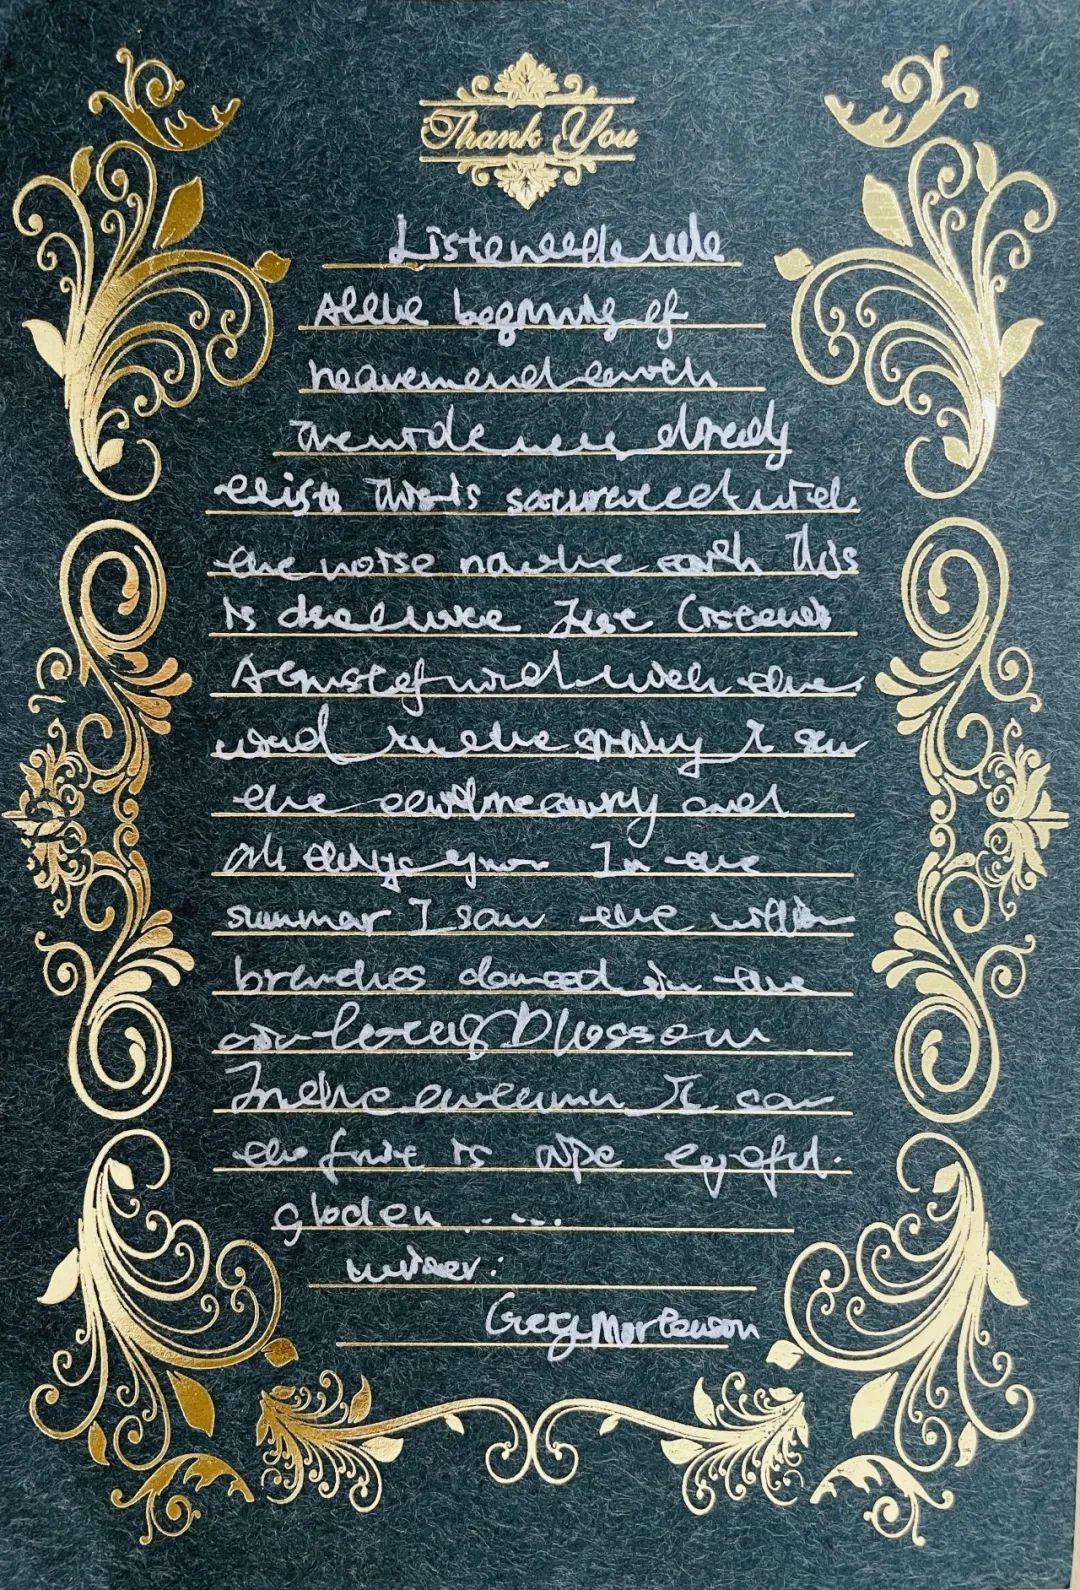 Thank You
Listen the wide
At the beginning of
heaven and earth
The wide were already
exists This is saturated with
the noise the earth This
is Just Listen
A gust of wind with the
wind in the spring I saw
the earth and
all things grow In the
summar I saw the willow
branches danced in the
air lotus Blossom
In the autumn I saw
the fruit is ripe
gloden .....
writer:
Greg Mortenson